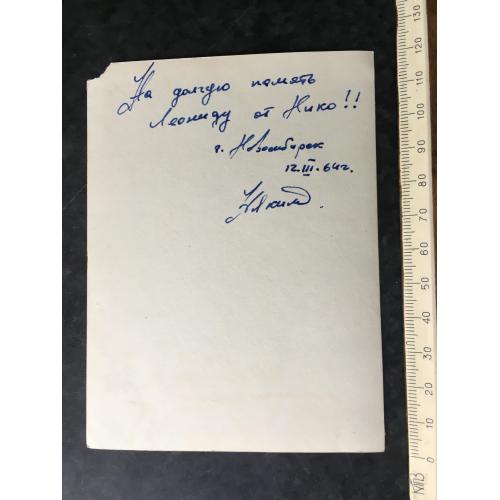 На долгую память
Леониду от Нико!!
г. Новосибирск
12.III.64г.
130
120
110
100
90
80
70
60
50
40
30
20
10
0